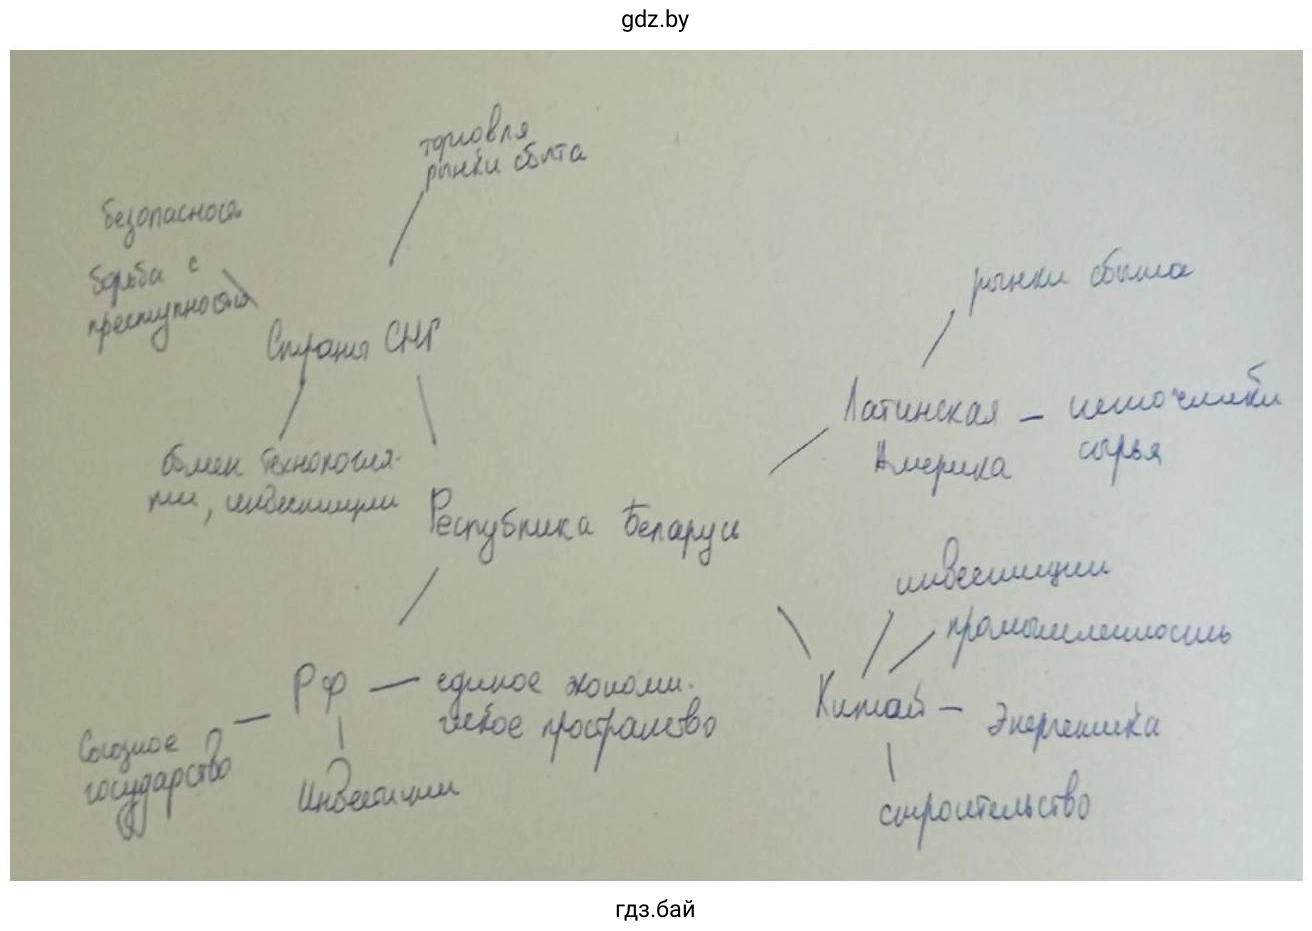 gdz.by
торговля
рынки сбыта
безопасность
борьба с
преступностью
Страны СНГ
обмен технология-
ми, инвестиции
Республика Беларусь
рынки сбыта
Латинская – источники
Америка сырья
инвестиции
промышленность
Китай – Энергетика
строительство
РФ — единое экономи-
ческое пространство
Союзное
государство
Инвестиции
гдз.бай